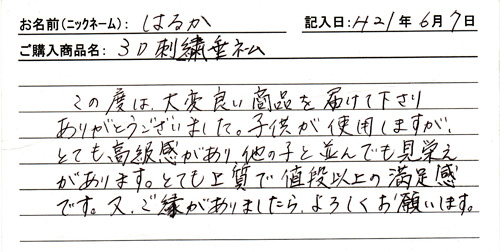 お名前(ニックネーム): はるか 記入日: H21年6月7日
ご購入商品名: 3D刺繍垂ネーム
この度は、大変良い商品を届けて下さり
ありがとうございました。子供が使用しますが、
とても高級感があり、他の子と並んでも見栄え
があります。とても上質で値段以上の満足感
です。又、ご縁がありましたら、よろしくお願いします。